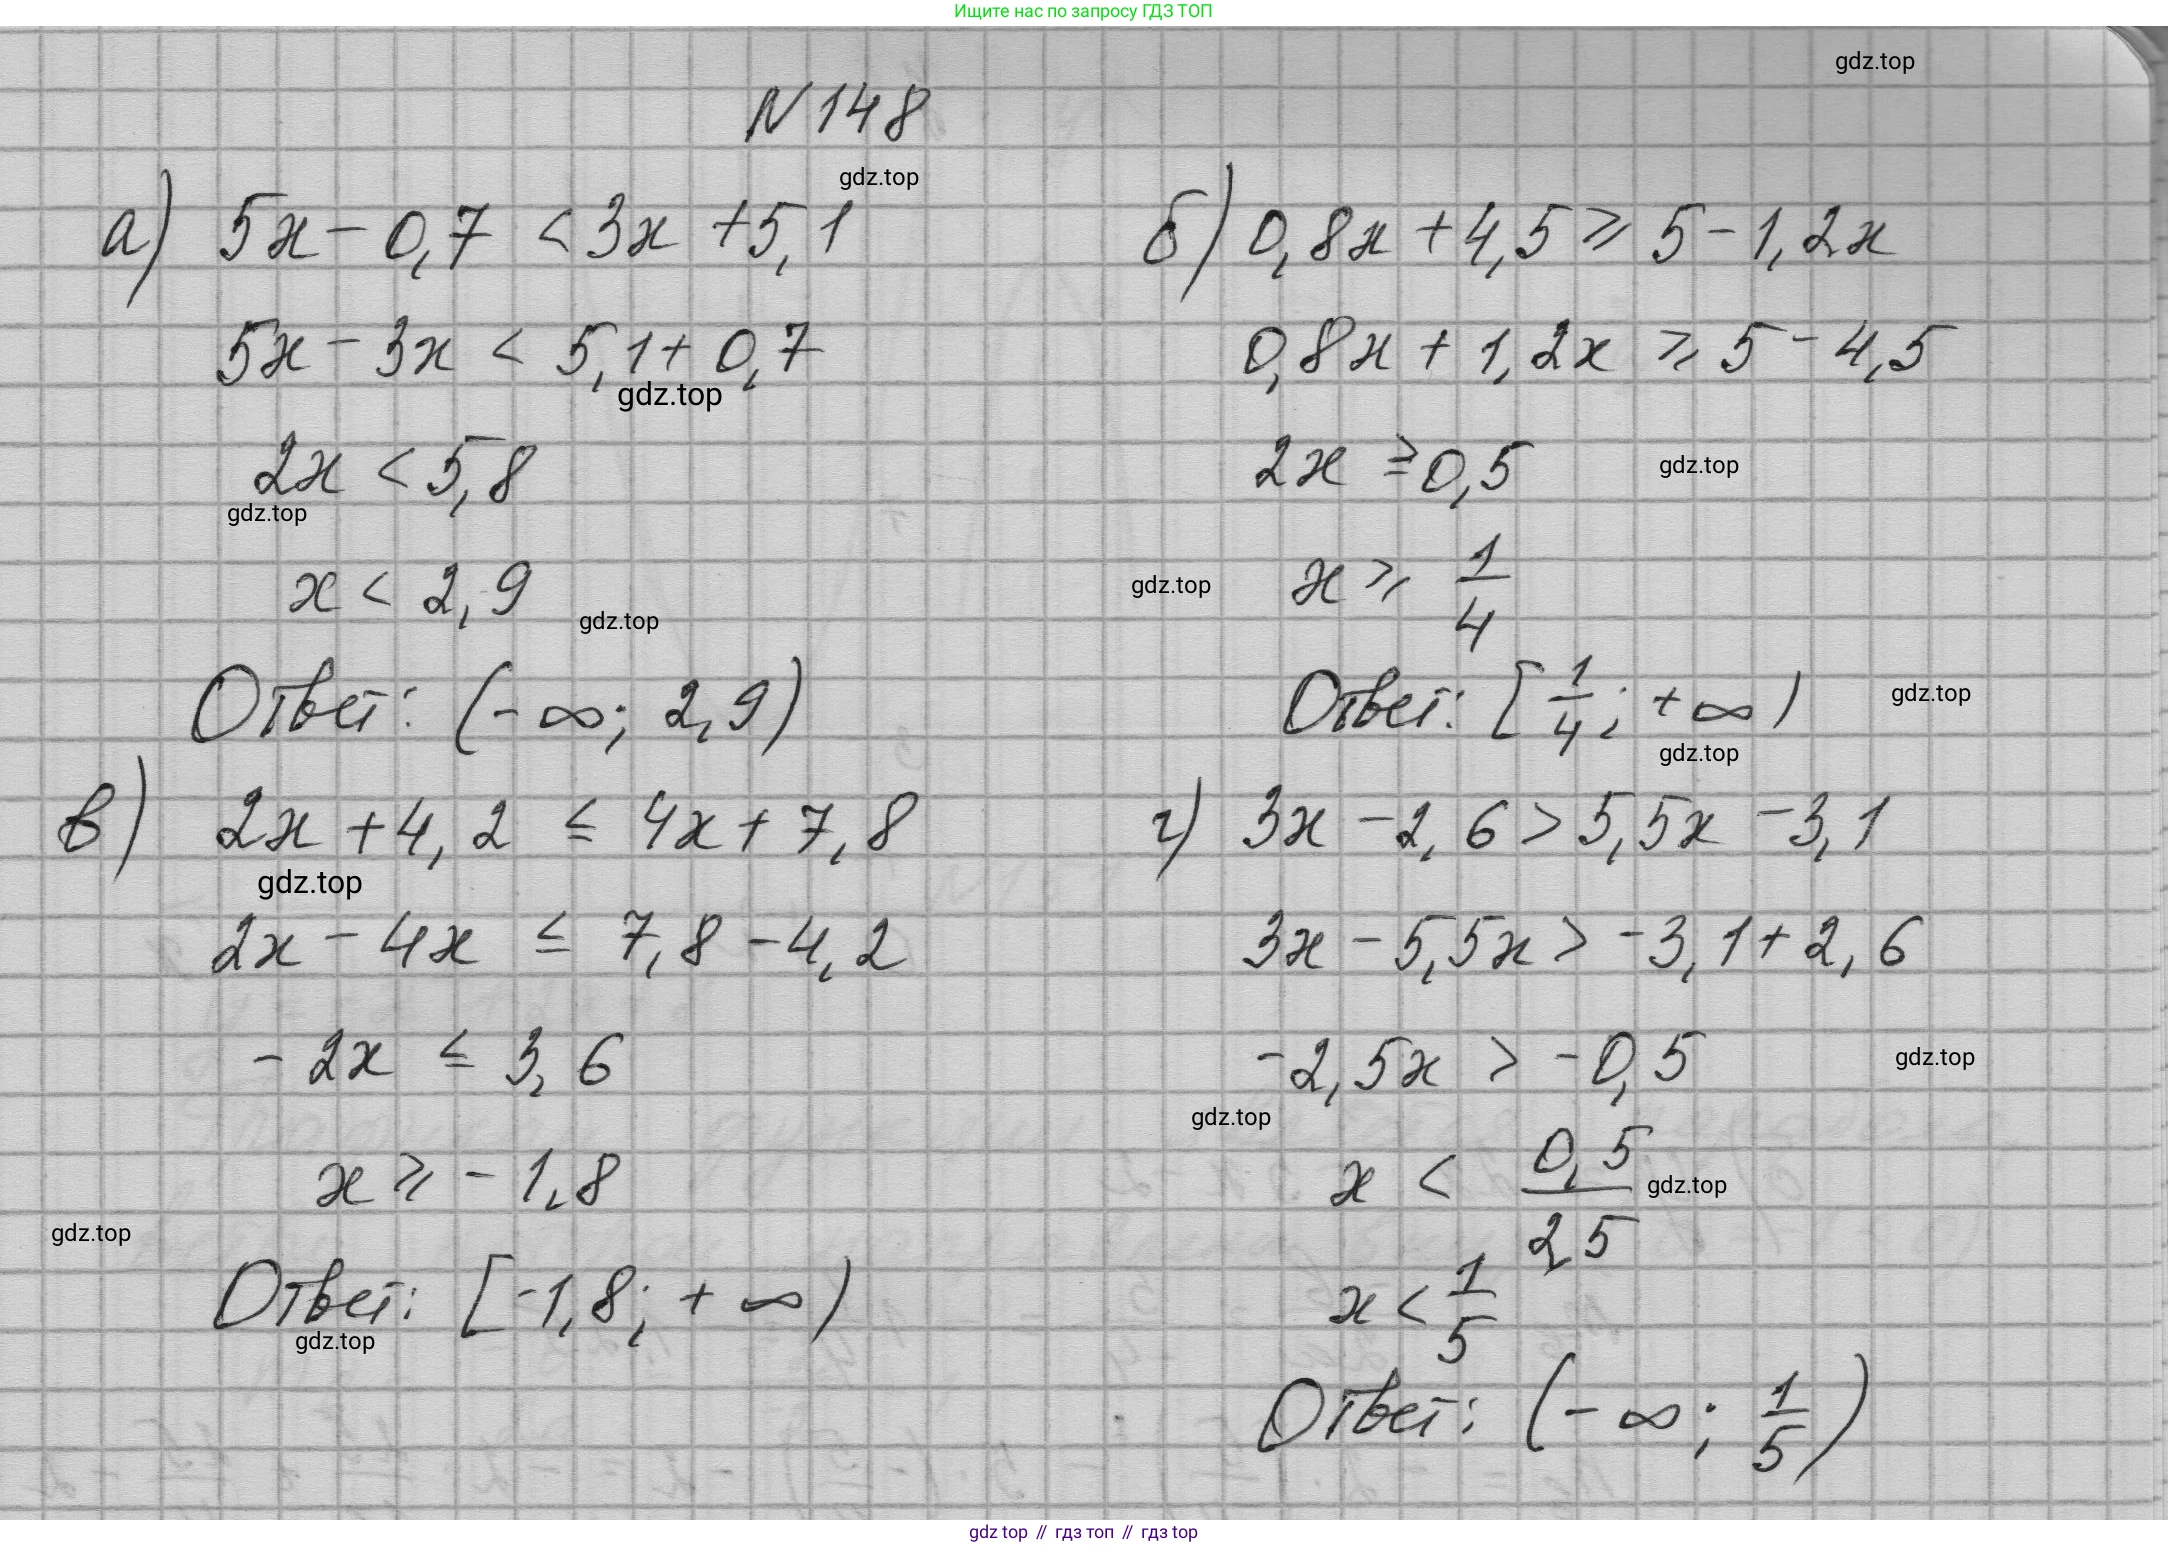 Ищите нас по запросу ГДЗ ТОП
gdz.top
N 148
gdz.top
а) 5x - 0,7 < 3x + 5,1
5x - 3x < 5,1 + 0,7
gdz.top
2x < 5,8
gdz.top
x < 2,9
gdz.top
Ответ: (-∞; 2,9)
б) 0,8x + 4,5 ⩾ 5 - 1,2x
0,8x + 1,2x ⩾ 5 - 4,5
2x ≥ 0,5
gdz.top
gdz.top
x ⩾ 1/4
Ответ: [1/4; +∞)
gdz.top
gdz.top
в) 2x + 4,2 ≤ 4x + 7,8
gdz.top
2x - 4x ≤ 7,8 - 4,2
-2x ≤ 3,6
x ⩾ -1,8
gdz.top
Ответ: [-1,8; +∞)
gdz.top
г) 3x - 2,6 > 5,5x - 3,1
3x - 5,5x > -3,1 + 2,6
-2,5x > -0,5
gdz.top
gdz.top
x < 0,5/2,5
gdz.top
x < 1/5
Ответ: (-∞; 1/5)
gdz top // гдз топ // гдз top